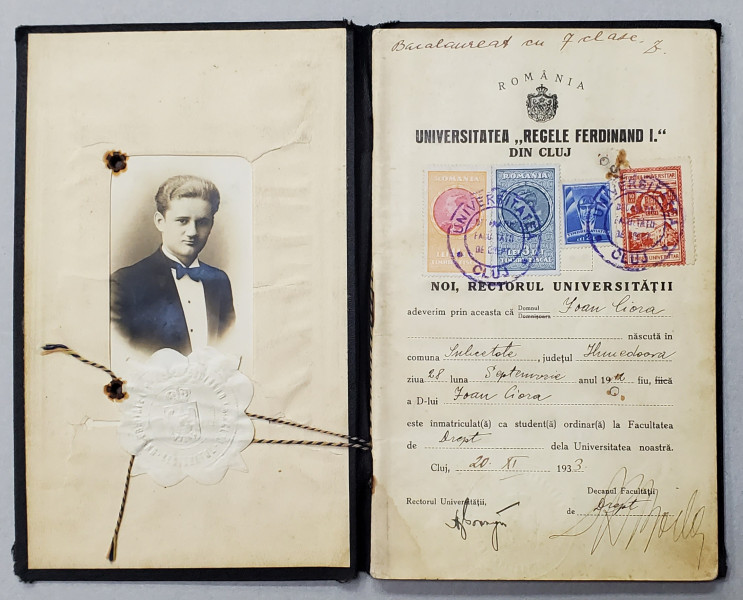 Bacalaureat cu 7 clase.
ROMÂNIA
UNIVERSITATEA „REGELE FERDINAND I.“
DIN CLUJ
ROMANIA
LEI
TIMBRU FISCAL
ROMANIA
LEI
TIMBRU FISCAL
UNIVERSITAR
UNIVERSITATEA
FACULTATEA
DE DREPT
CLUJ
UNIVERSITATEA
CLUJ
NOI, RECTORUL UNIVERSITĂȚII
adeverim prin aceasta că Domnul Domnișoara Ioan Ciora
născută în
comuna Subcetate, județul Hunedoara
ziua 28 luna Septemvrie anul 1912 fiu, fiică
a D-lui Ioan Ciora
este inmatriculat(ă) ca student(ă) ordinar(ă) la Facultatea
de Drept dela Universitatea noastră.
Cluj, 20 XI 1933
Rectorul Universității,
Decanul Facultății
de Drept